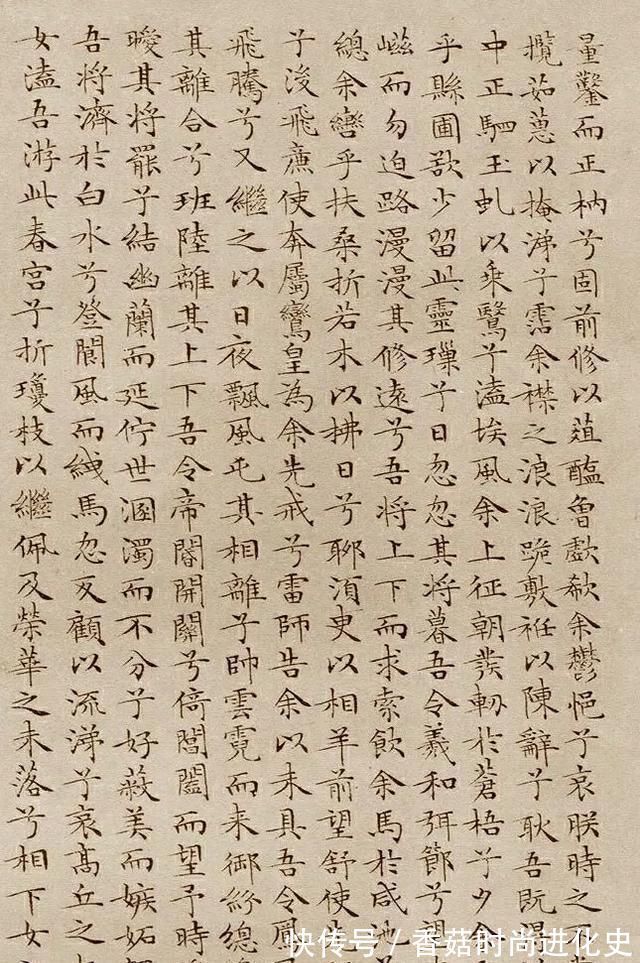 量鑿而正枘兮固前修以菹醢曾歔欷余鬱悒兮哀朕時之不
攬茹蕙以掩涕兮霑余襟之浪浪跪敷衽以陳辭兮耿吾既得
中正駟玉虬以乘鷖兮溘埃風余上征朝發軔於蒼梧兮夕余
乎縣圃欲少留此靈璅兮日忽忽其將暮吾令羲和弭節兮望
嵫而勿迫路漫漫其修遠兮吾將上下而求索飲余馬於咸池
總余轡乎扶桑折若木以拂日兮聊湏臾以相羊前望舒使先
兮後飛廉使奔屬鸞皇為余先戒兮雷師告余以未具吾令鳳
飛騰兮又繼之以日夜飄風屯其相離兮帥雲霓而来御紛總
其離合兮班陸離其上下吾令帝閽開關兮倚閶闔而望予時
曖其將罷兮結幽蘭而延佇世溷濁而不分兮好蔽美而嫉妬
吾將濟於白水兮登閬風而緤馬忽反顧以流涕兮哀高丘之
女溘吾游此春宮兮折瓊枝以繼佩及榮華之未落兮相下女
快传号/香菇时尚进化史